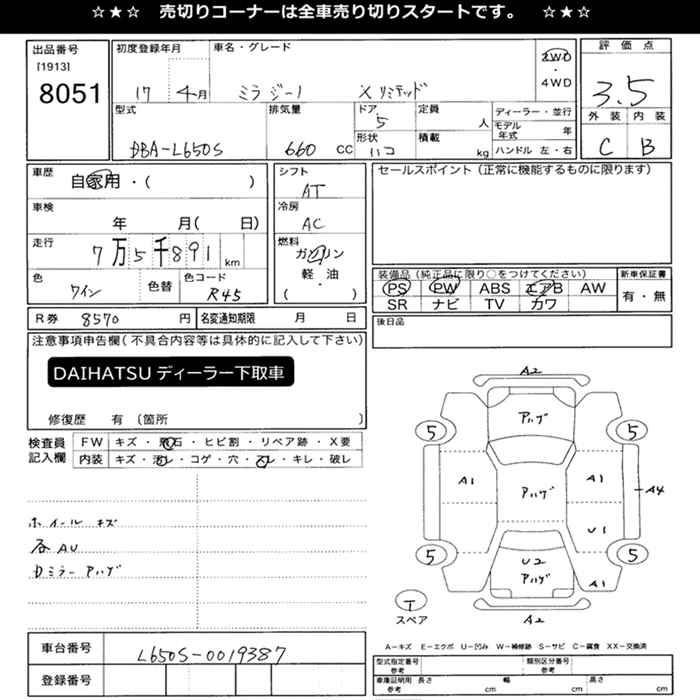 ☆★☆ 売切りコーナーは全車売り切りスタートです。 ☆★☆
出品番号
[1913]
8051
初度登録年月
17 4月
車名・グレード
ミラジーノ X リミテッド
2WD
・
4WD
評価点
3.5
外装 内装
C B
型式
DBA-L650S
排気量
660 CC
ドア
5
形状
ハコ
定員
人
積載
kg
ディーラー・並行
モデル年式 年
ハンドル 左・右
車歴
自家用・( )
車検
年 月( 日)
走行
7万5千891 km
色
ワイン
色替
色コード
R45
シフト
AT
冷房
AC
燃料
ガソリン
軽・油
・
( )
セールスポイント(正常に機能するものに限ります)
装備品(純正品に限り○をつけてください)
PS PW ABS エアB AW
SR ナビ TV カワ
新車保証書
有・無
R券 8570 円
名変通知期限 月 日
後日品
注意事項申告欄(不具合内容等は具体的に記入して下さい)
DAIHATSU ディーラー下取車
修復歴 有 (箇所 )
検査員
記入欄
FW キズ・飛石・ヒビ割・リペア跡・X要
内装 キズ・汚レ・コゲ・穴・スレ・キレ・破レ
ホイール キズ
各AU
Dミラー アハゲ
A2
アハゲ
5 5
A1 アハゲ A1
A4
U1
5 5
U2
アハゲ
A1
T
スペア
A2
A−キズ E−エクボ U−凹み W−補修跡 S−サビ C−腐食 XX−交換済
車台番号 L650S-0019387
登録番号
型式指定番号
参考
類別区分番号
参考
車庫証明用
参考
長さ cm
幅 cm
高さ cm